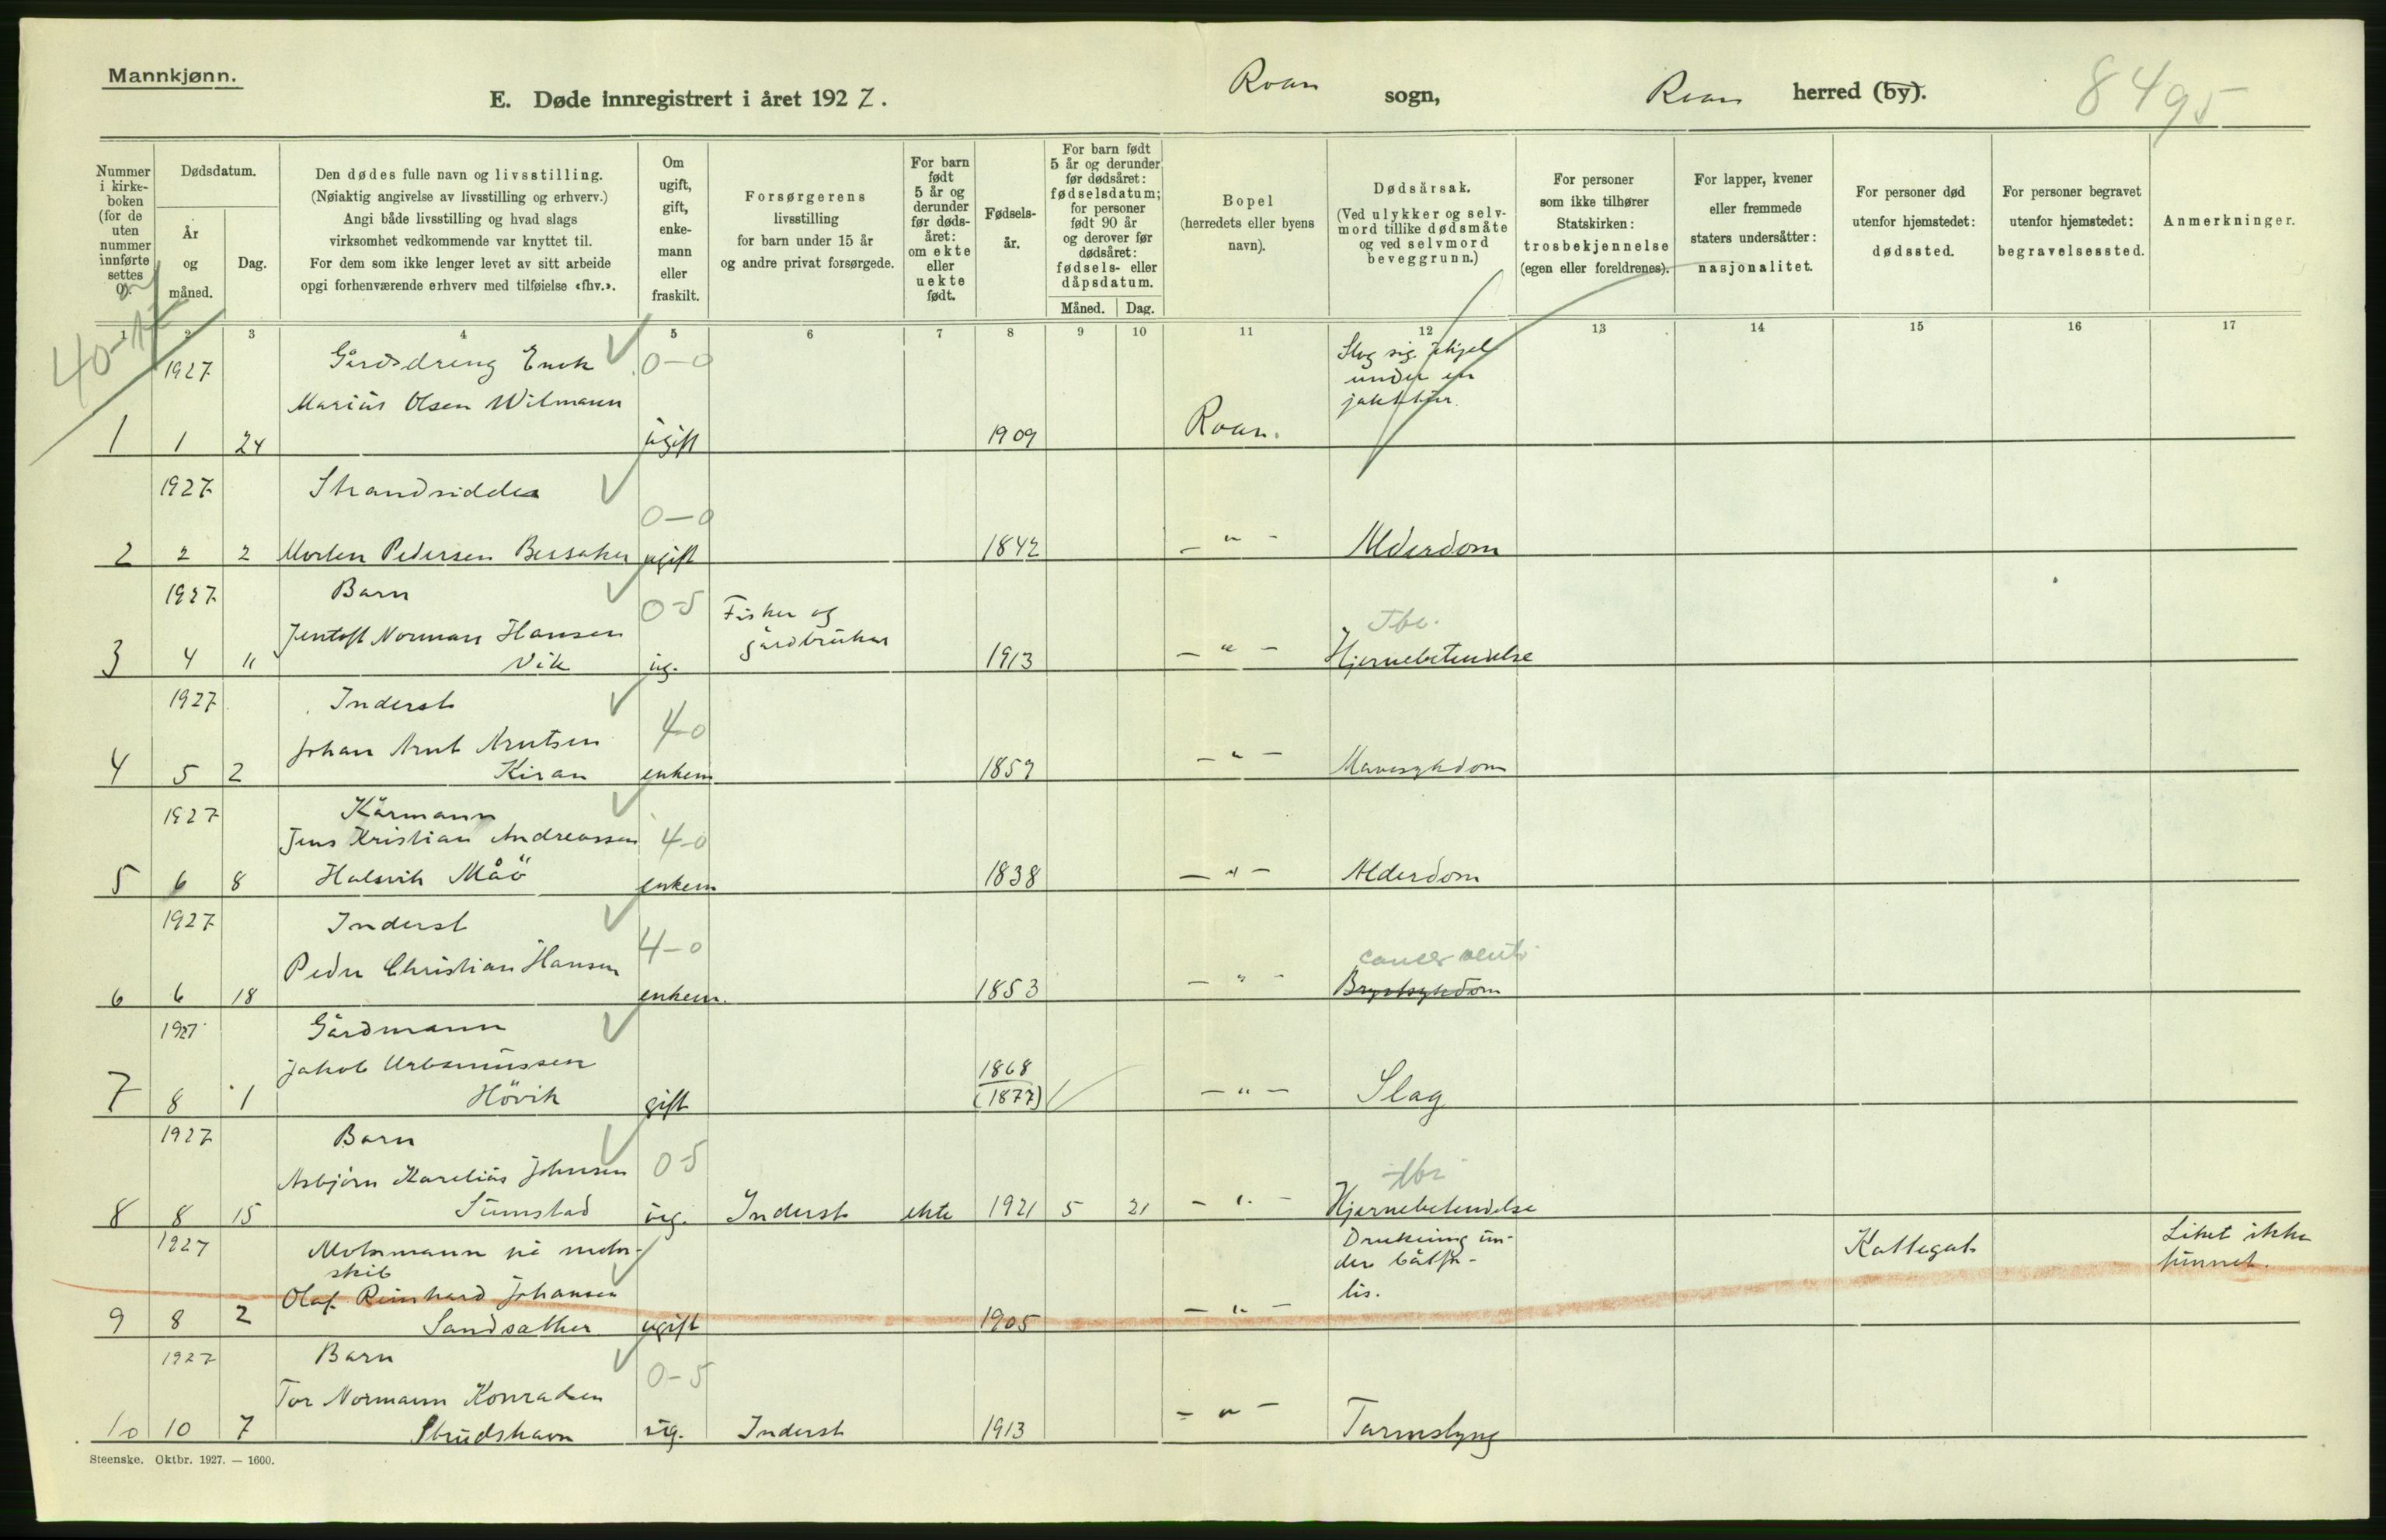 Mannkjønn.
E. Døde innregistrert i året 1927.
Roan sogn,
Roan herred (by).
8495
Nummer i kirkeboken (for de uten nummer innførte settes 0).
Dødsdatum.
År og måned.
Dag.
Den dødes fulle navn og livsstilling.
(Nøiaktig angivelse av livsstilling og erhverv.)
Angi både livsstilling og hvad slags
virksomhet vedkommende var knyttet til.
For dem som ikke lenger levet av sitt arbeide
opgi forhenværende erhverv med tilføielse «fhv.».
Om ugift, gift, enkemann eller fraskilt.
Forsørgerens
livsstilling
for barn under 15 år
og andre privat forsørgede.
For barn født 5 år og derunder før dødsåret: om ekte eller uekte født.
Fødselsår.
For barn født 5 år og derunder før dødsåret: fødselsdatum; for personer født 90 år og derover før dødsåret: fødsels- eller dåpsdatum.
Måned. Dag.
Bopel
(herredets eller byens
navn).
Dødsårsak.
(Ved ulykker og selvmord tillike dødsmåte og ved selvmord beveggrunn.)
For personer
som ikke tilhører
Statskirken:
trosbekjennelse
(egen eller foreldrenes).
For lapper, kvener
eller fremmede
staters undersåtter:
nasjonalitet.
For personer død
utenfor hjemstedet:
dødssted.
For personer begravet
utenfor hjemstedet:
begravelsessted.
Anmerkninger.
1 2 3 4 5 6 7 8 9 10 11 12 13 14 15 16 17
1927 Gårdsdreng 0-0 Slog sig ihjel
Marius Olsen Wilmann under en
1 1 24 ugift 1909 Roan.
1927 Strandsidder
0-0
2 2 2 Morten Pedersen Bessaker ugift 1842 - " - Alderdom
1927 Barn 0-5 Fisker og Tbc.
Jentoft Norman Hansen gårdbruker
3 4 11 Vik ug. 1913 - " - Hjernebetendelse
1927 Inderst 4-0
Johan Arnt Arntsen
4 5 2 Kiran enkem 1859 - " - Mavesykdom
1927 Kårmann
Jens Kristian Andreassen 4-0
5 6 8 Halsvik Måö enkem 1838 - " - Alderdom
1927 Inderst 4-0
Peder Christian Hansen cancer ventr.
6 6 18 enkem. 1853 - " - Brystsykdom
1927 Gårdmann
Jakob 1868
7 8 1 Hövik gift (1877) - " - Slag
1927 Barn 0-5 tbc
Asbjörn Karelius Johnsen
8 8 15 Sumstad ug. Inderst ekte 1921 5 21 - " - Hjernebetendelse
1927 på motorskib Drukning under båtforlis. Kattegat Liket ikke funnet.
Olaf Reinhard Johansen
9 8 2 Sandsather ugift 1905 - " -
1927 Barn 0-5
Tor Normann Konradsen
10 10 7 Strudshavn ug. Inderst 1913 - " - Tarmslyng
Steenske. Oktbr. 1927. — 1600.